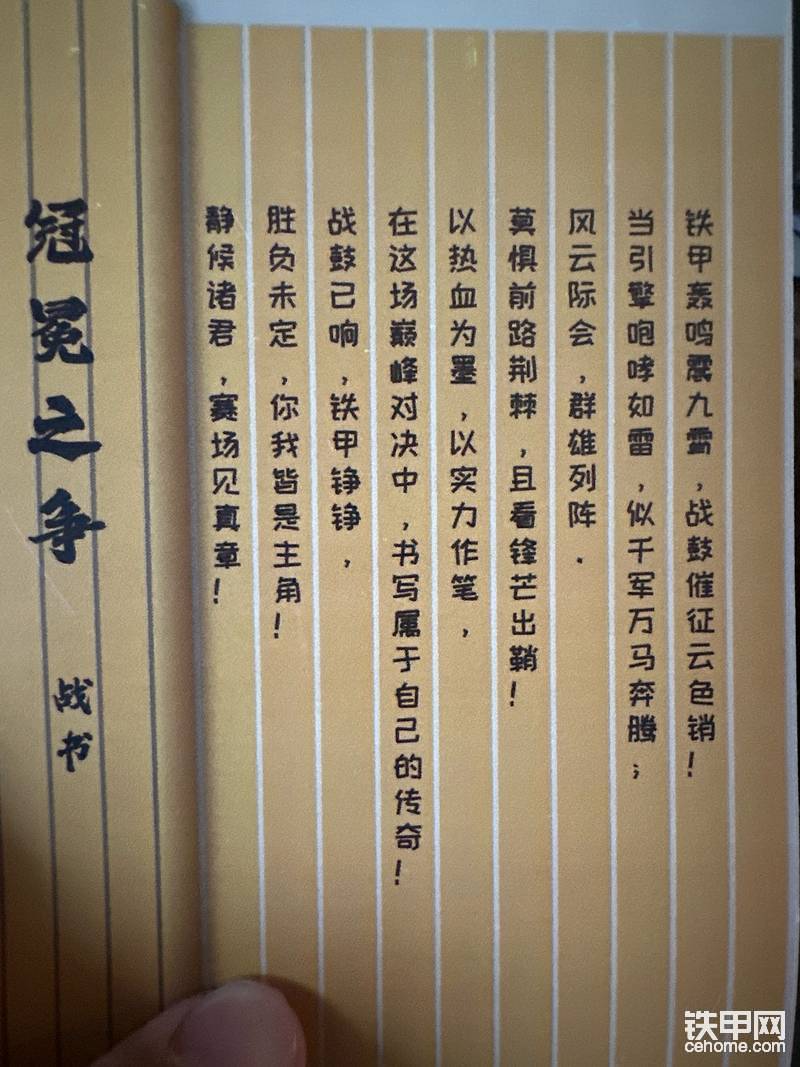 铁甲轰鸣震九霄，战鼓催征云色销！
当引擎咆哮如雷，似千军万马奔腾；
风云际会，群雄列阵.
莫惧前路荆棘，且看锋芒出鞘！
以热血为墨，以实力作笔，
在这场巅峰对决中，书写属于自己的传奇！
战鼓已响，铁甲铮铮，
胜负未定，你我皆是主角！
静候诸君，赛场见真章！
冠冕之争
战书
铁甲网
cehome.com